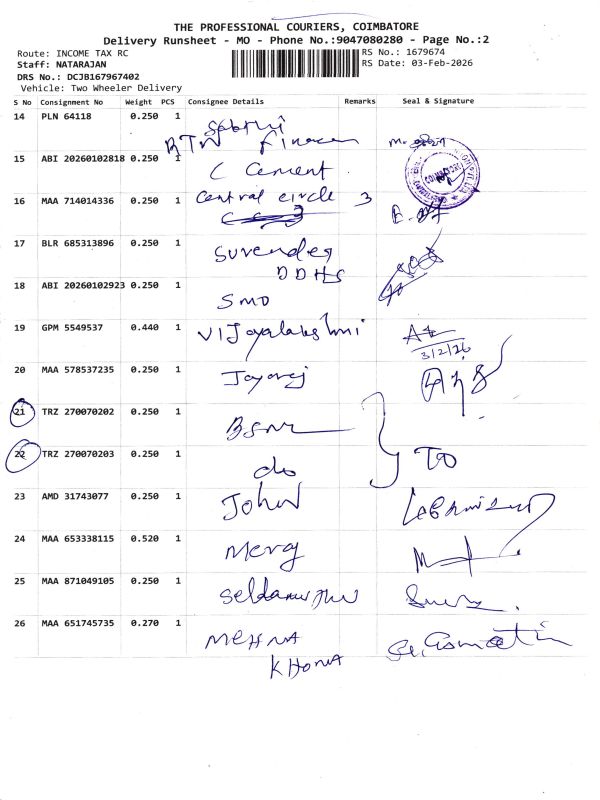 THE PROFESSIONAL COURIERS, COIMBATORE
Delivery Runsheet - MO - Phone No.:9047080280 - Page No.:2
Route: INCOME TAX RC
RS No.: 1679674
Staff: NATARAJAN
RS Date: 03-Feb-2026
DRS No.: DCJB167967402
Vehicle: Two Wheeler Delivery
S No Consignment No Weight PCS Consignee Details Remarks Seal & Signature
14 PLN 64118 0.250 1
15 ABI 20260102818 0.250 1 C Cement
16 MAA 714014336 0.250 1 Central circle 3
17 BLR 685313896 0.250 1 Surender
DDHS
18 ABI 20260102923 0.250 1 SMO
19 GPM 5549537 0.440 1 VIJayalakshmi
3/2/26
20 MAA 578537235 0.250 1 Jayaraj
21 TRZ 270070202 0.250 1 BSNL
22 TRZ 270070203 0.250 1 do TO
23 AMD 31743077 0.250 1 John
24 MAA 653338115 0.520 1
25 MAA 871049105 0.250 1
26 MAA 651745735 0.270 1 MEHNA
KHONA